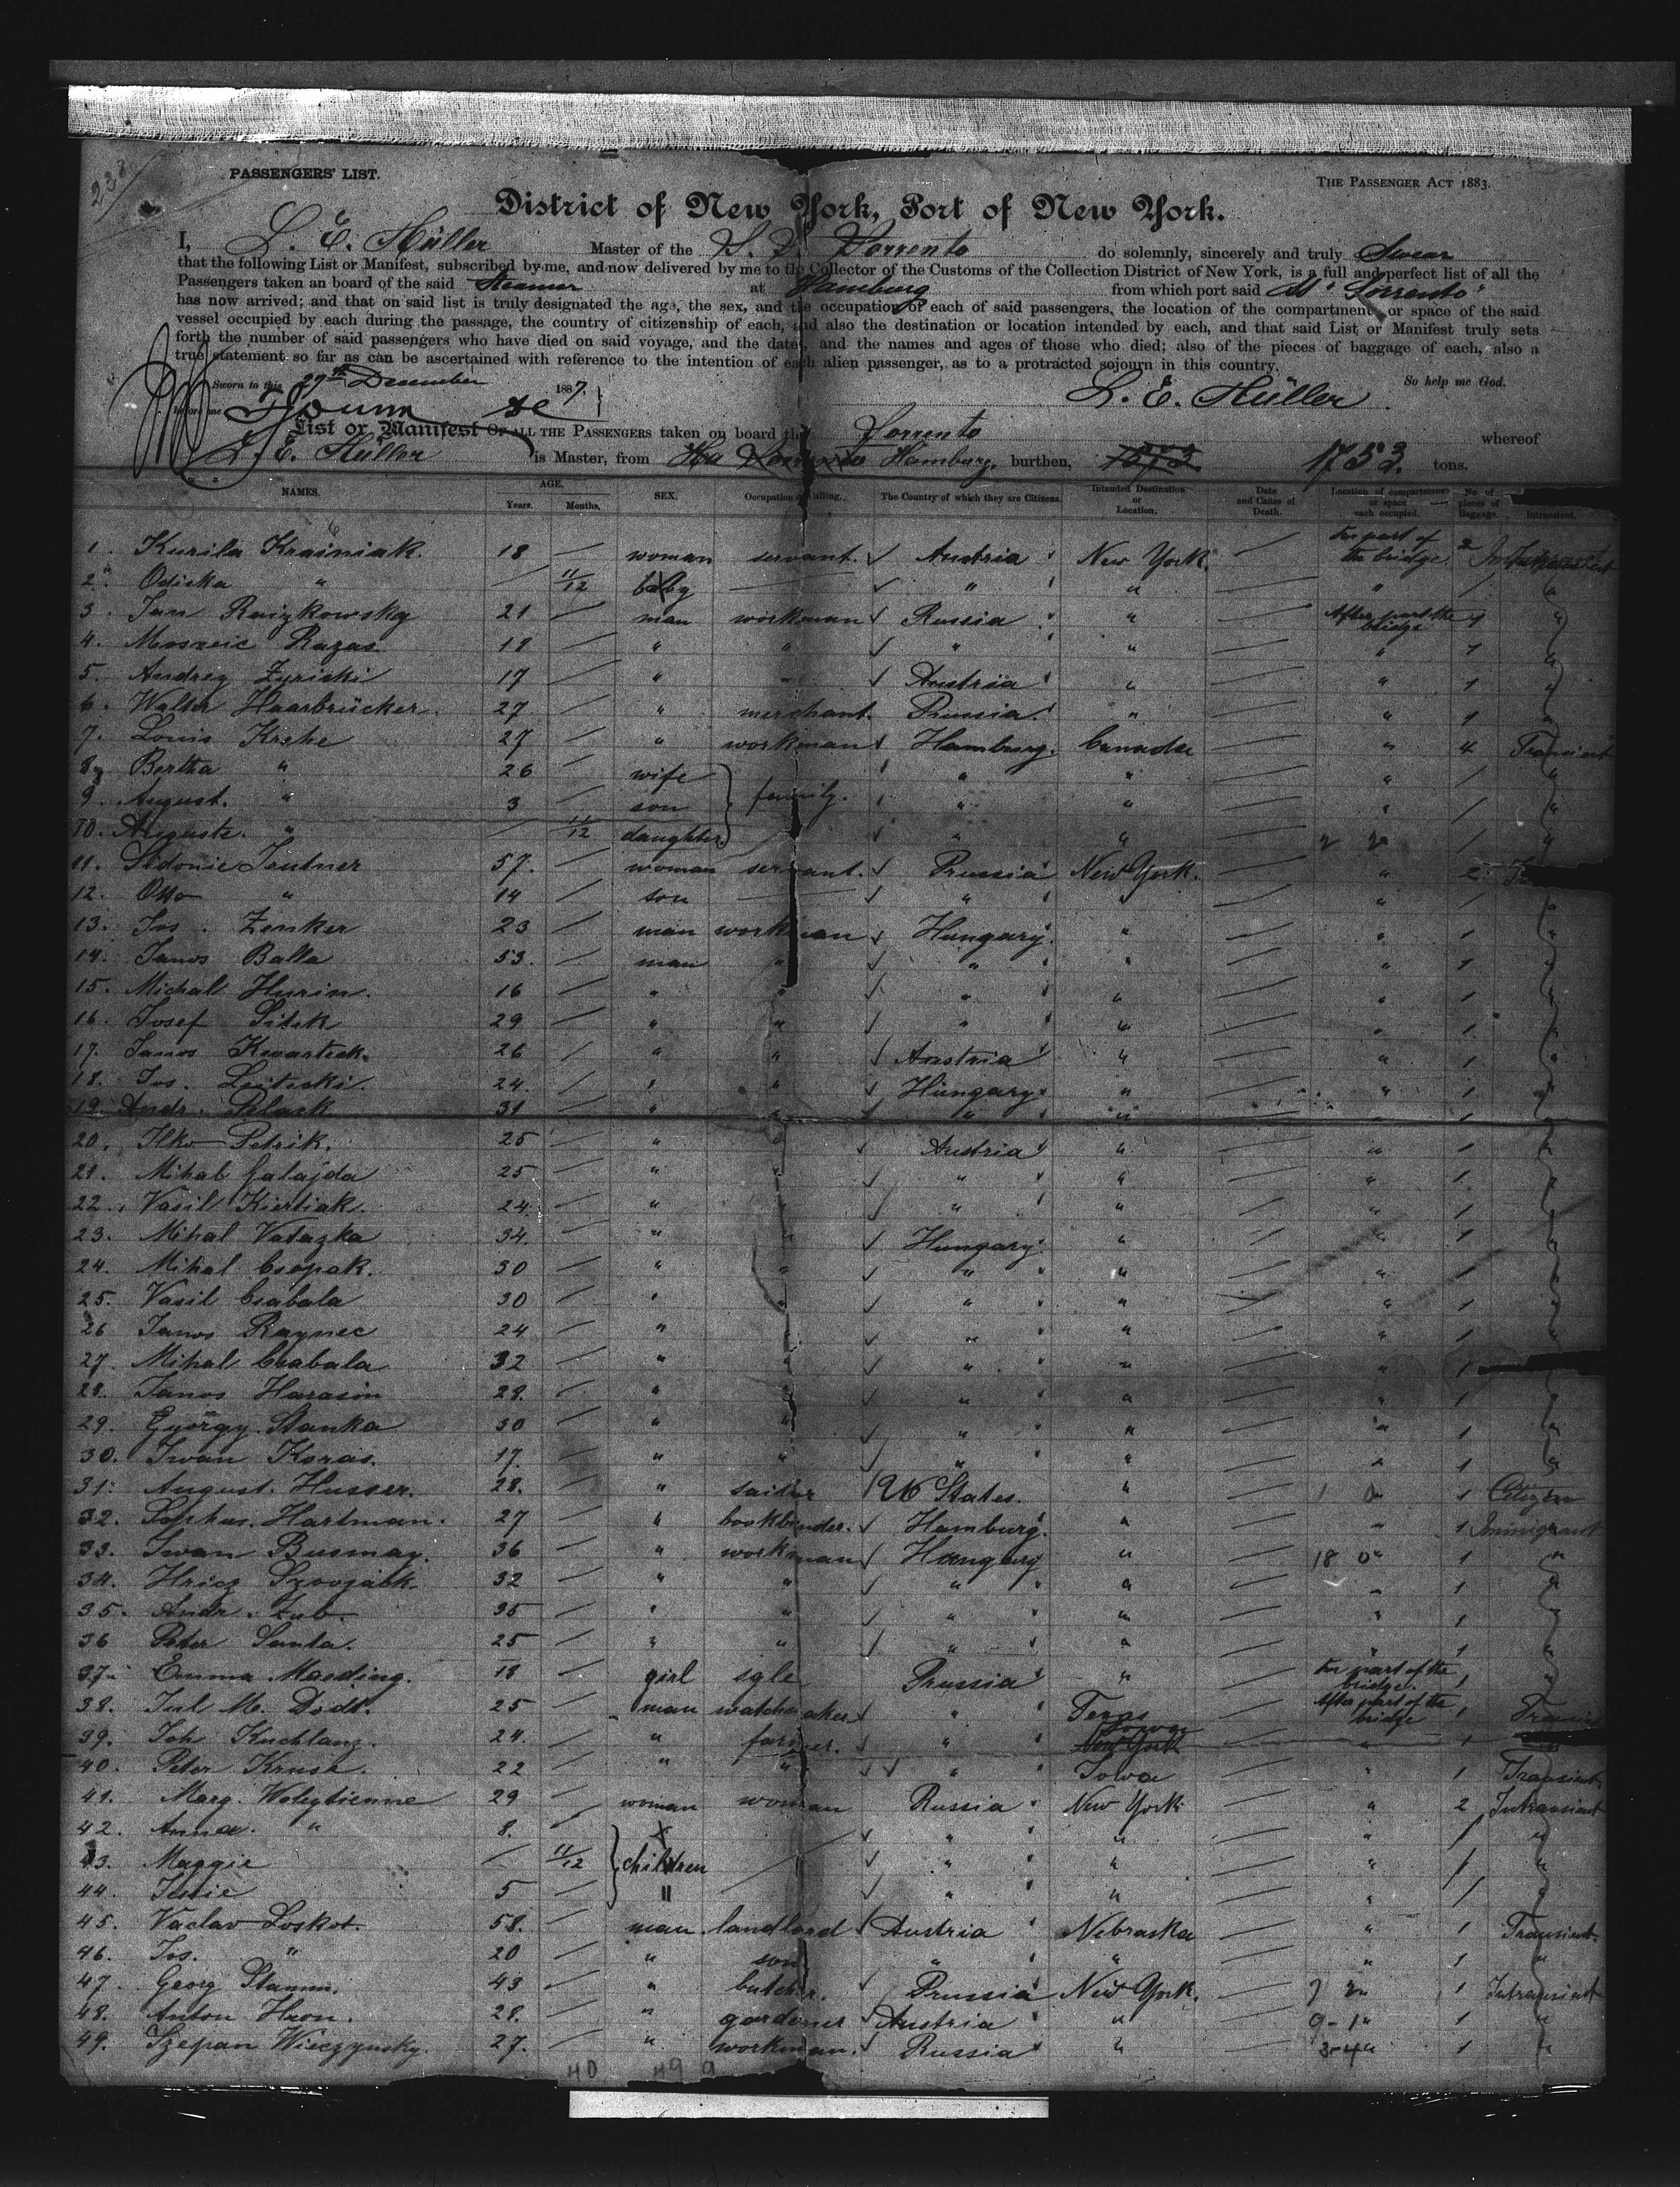 238
PASSENGERS' LIST.
THE PASSENGER ACT 1883.
District of New York, Port of New York.
I, L. E. Müller Master of the S. S. Sorrento do solemnly, sincerely and truly Swear
that the following List or Manifest, subscribed by me, and now delivered by me to the Collector of the Customs of the Collection District of New York, is a full and perfect list of all the
Passengers taken on board of the said Steamer at Hamburg from which port said Sorrento
has now arrived; and that on said list is truly designated the age, the sex, and the occupation of each of said passengers, the location of the compartment or space of the said
vessel occupied by each during the passage, the country of citizenship of each, and also the destination or location intended by each, and that said List or Manifest truly sets
forth the number of said passengers who have died on said voyage, and the dates, and the names and ages of those who died; also of the pieces of baggage of each, also a
true statement so far as can be ascertained with reference to the intention of each alien passenger, as to a protracted sojourn in this country.
So help me God.
Sworn to this 27th December 1887.
L. E. Müller
before me
List or Manifest OF ALL THE PASSENGERS taken on board the Sorrento whereof
L. E. Müller is Master, from Hamburg, burthen, 1753. tons.
NAMES. AGE. Years. Months. SEX. Occupation or Calling. The Country of which they are Citizens. Intended Destination or Location. Date and Cause of Death. Location of compartment or space each occupied. No. of pieces of Baggage.
1. Kurila Krainiak 18 — woman servant. Austria New York. — for part of the bridge 2
2. Odiska " — 11/12 baby — " " — " /
3. Jan Raizkowsky 21 — man workman Russia " — After part the bridge 1 "
4. Moszeic Razas 18 — " " " " — " 1 "
5. Andrey Zyricki 17 — " " Austria " — " 1 "
6. Walter Haarbrücker 27 — " merchant. Prussia " — " 1 "
7. Louis Krehe 27 — " workman Hamburg. Canada — " 4 Transient
8. Bertha " 26 — wife family. " " — " "
9. August. " 3 — son " " — " / "
10. Auguste. " — 11/12 daughter " " — / "
11. Sidonie Teutner 57. — woman servant. Prussia New York. — " 2
12. Otto " 14 — son — " " — " / "
13. Jos. Zenker 23 — man workman Hungary " — " 1 "
14. Janos Balla 53. — man " " " — " 1 "
15. Michal Hurin. 16 — " " " " — " 1 "
16. Josef Sitek 29 — " " " " — " 1 "
17. Janos Kwartek. 26 — " " Austria " — " 1 "
18. Jos. Leiteski. 24. — " " Hungary " — " 1 "
19. Andr. Polack 31 — " " " " — " 1 "
20. Ilko Petrik. 25 — " " Austria " — " 1 "
21. Mihal Galajda 25 — " " " " — " 1 "
22. Vasil Kiertiak. 24. — " " " " — " 1 "
23. Mihal Vatazka 34. — " " Hungary " — " 1 "
24. Mihal Csopak. 30 — " " " " — " 1 "
25. Vasil Csabala 30 — " " " " — " 1 "
26 Janos Raynec 24 — " " " " — " 1 "
27. Mihal Csabala 32 — " " " " — " 1
28. Janos Harasin 28. — " " " " — " 1 "
29. György Stanka 30 — " " " " — " 1 "
30. Iwan Koras. 17. — " " " " — " 1 "
31. August. Husser. 28. — " sailor U States. " — 1 Citizen
32. Sophus. Hartman. 27 — " bookbinder. Hamburg. " — " 1 Immigrant
33. Iwan Busmay. 36 — " workman Hungary " — 18 1 "
34. Hricz Szovják 32 — " " " " — " 1 "
35. Andr. Zub. 35 — " " " " — " 1 "
36 Peter Santa. 25 — " " " " — " 1 "
37. Emma Maeding. 18 — girl sgle Prussia " — for part of the bridge. 1 "
38. Jul M. Dodt. 25 — man watchmaker " Texas — After part of the bridge 1
39. Joh Kuchlanz. 24. — " farmer. " New York — " 1
40. Peter Kruse. 22 — " " " Iowa — " 1 Transient
41. Marg. Woleytienne 29 — woman woman Russia New York — " 2 Intransient
42. Anna. " 8. — children " " — " / "
43. Maggie — 11/12 " " — " / "
44. 5 — " " " — " / "
45. Vaclav Loskot. 58. — man landlord Austria Nebraska — " 1 Transient
46. Jos. " 20 — " son " " — " 1 "
47. Georg Stamm. 43 — " butcher. Prussia New York. — 1 Intransient
48. Anton Hron. 28. — " gardener Austria " — 9-1" 1 "
49. Szepan Wieczynsky. 27. — " workman. Russia " — 3-4" 1 "
40 49 9